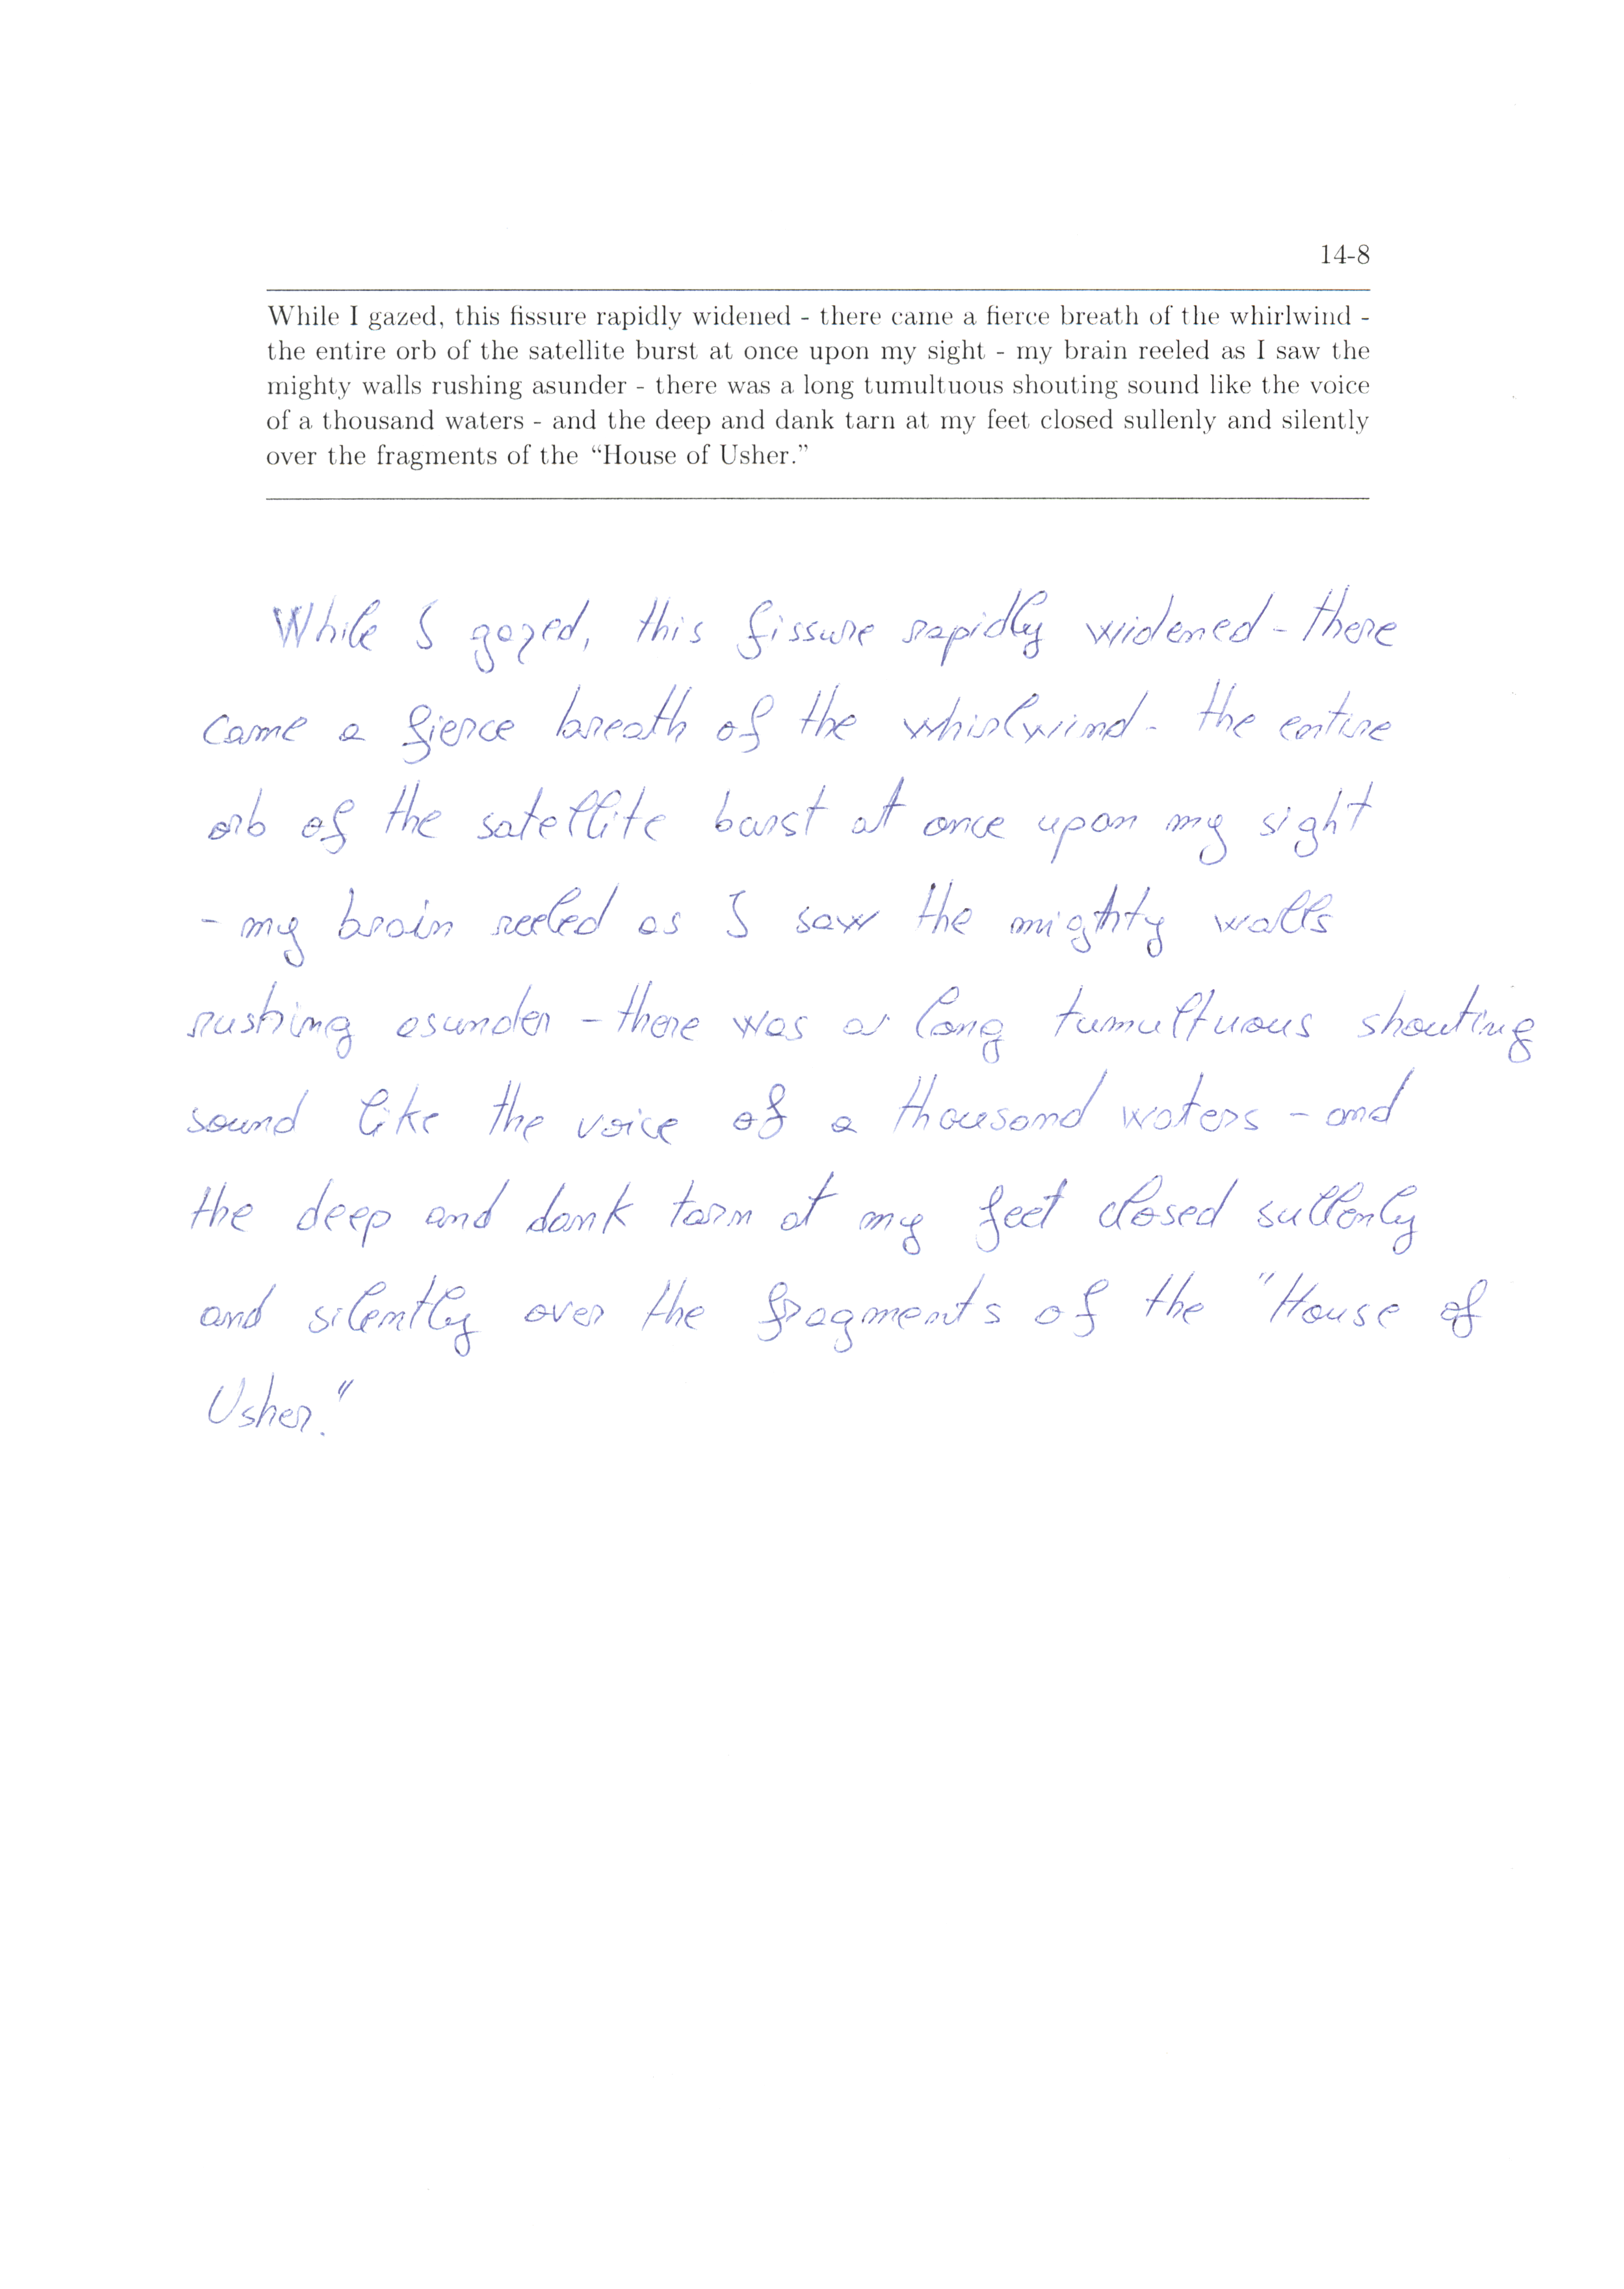 14-8
While I gazed, this fissure rapidly widened - there came a fierce breath of the whirlwind -
the entire orb of the satellite burst at once upon my sight - my brain reeled as I saw the
mighty walls rushing asunder - there was a long tumultuous shouting sound like the voice
of a thousand waters - and the deep and dank tarn at my feet closed sullenly and silently
over the fragments of the “House of Usher.”
While I gazed, this fissure rapidly widened - there
came a fierce breath of the whirlwind - the entire
orb of the satellite burst at once upon my sight
- my brain reeled as I saw the mighty walls
rushing asunder - there was a long tumultuous shouting
sound like the voice of a thousand waters - and
the deep and dank tarn at my feet closed sullenly
and silently over the fragments of the "House of
Usher."